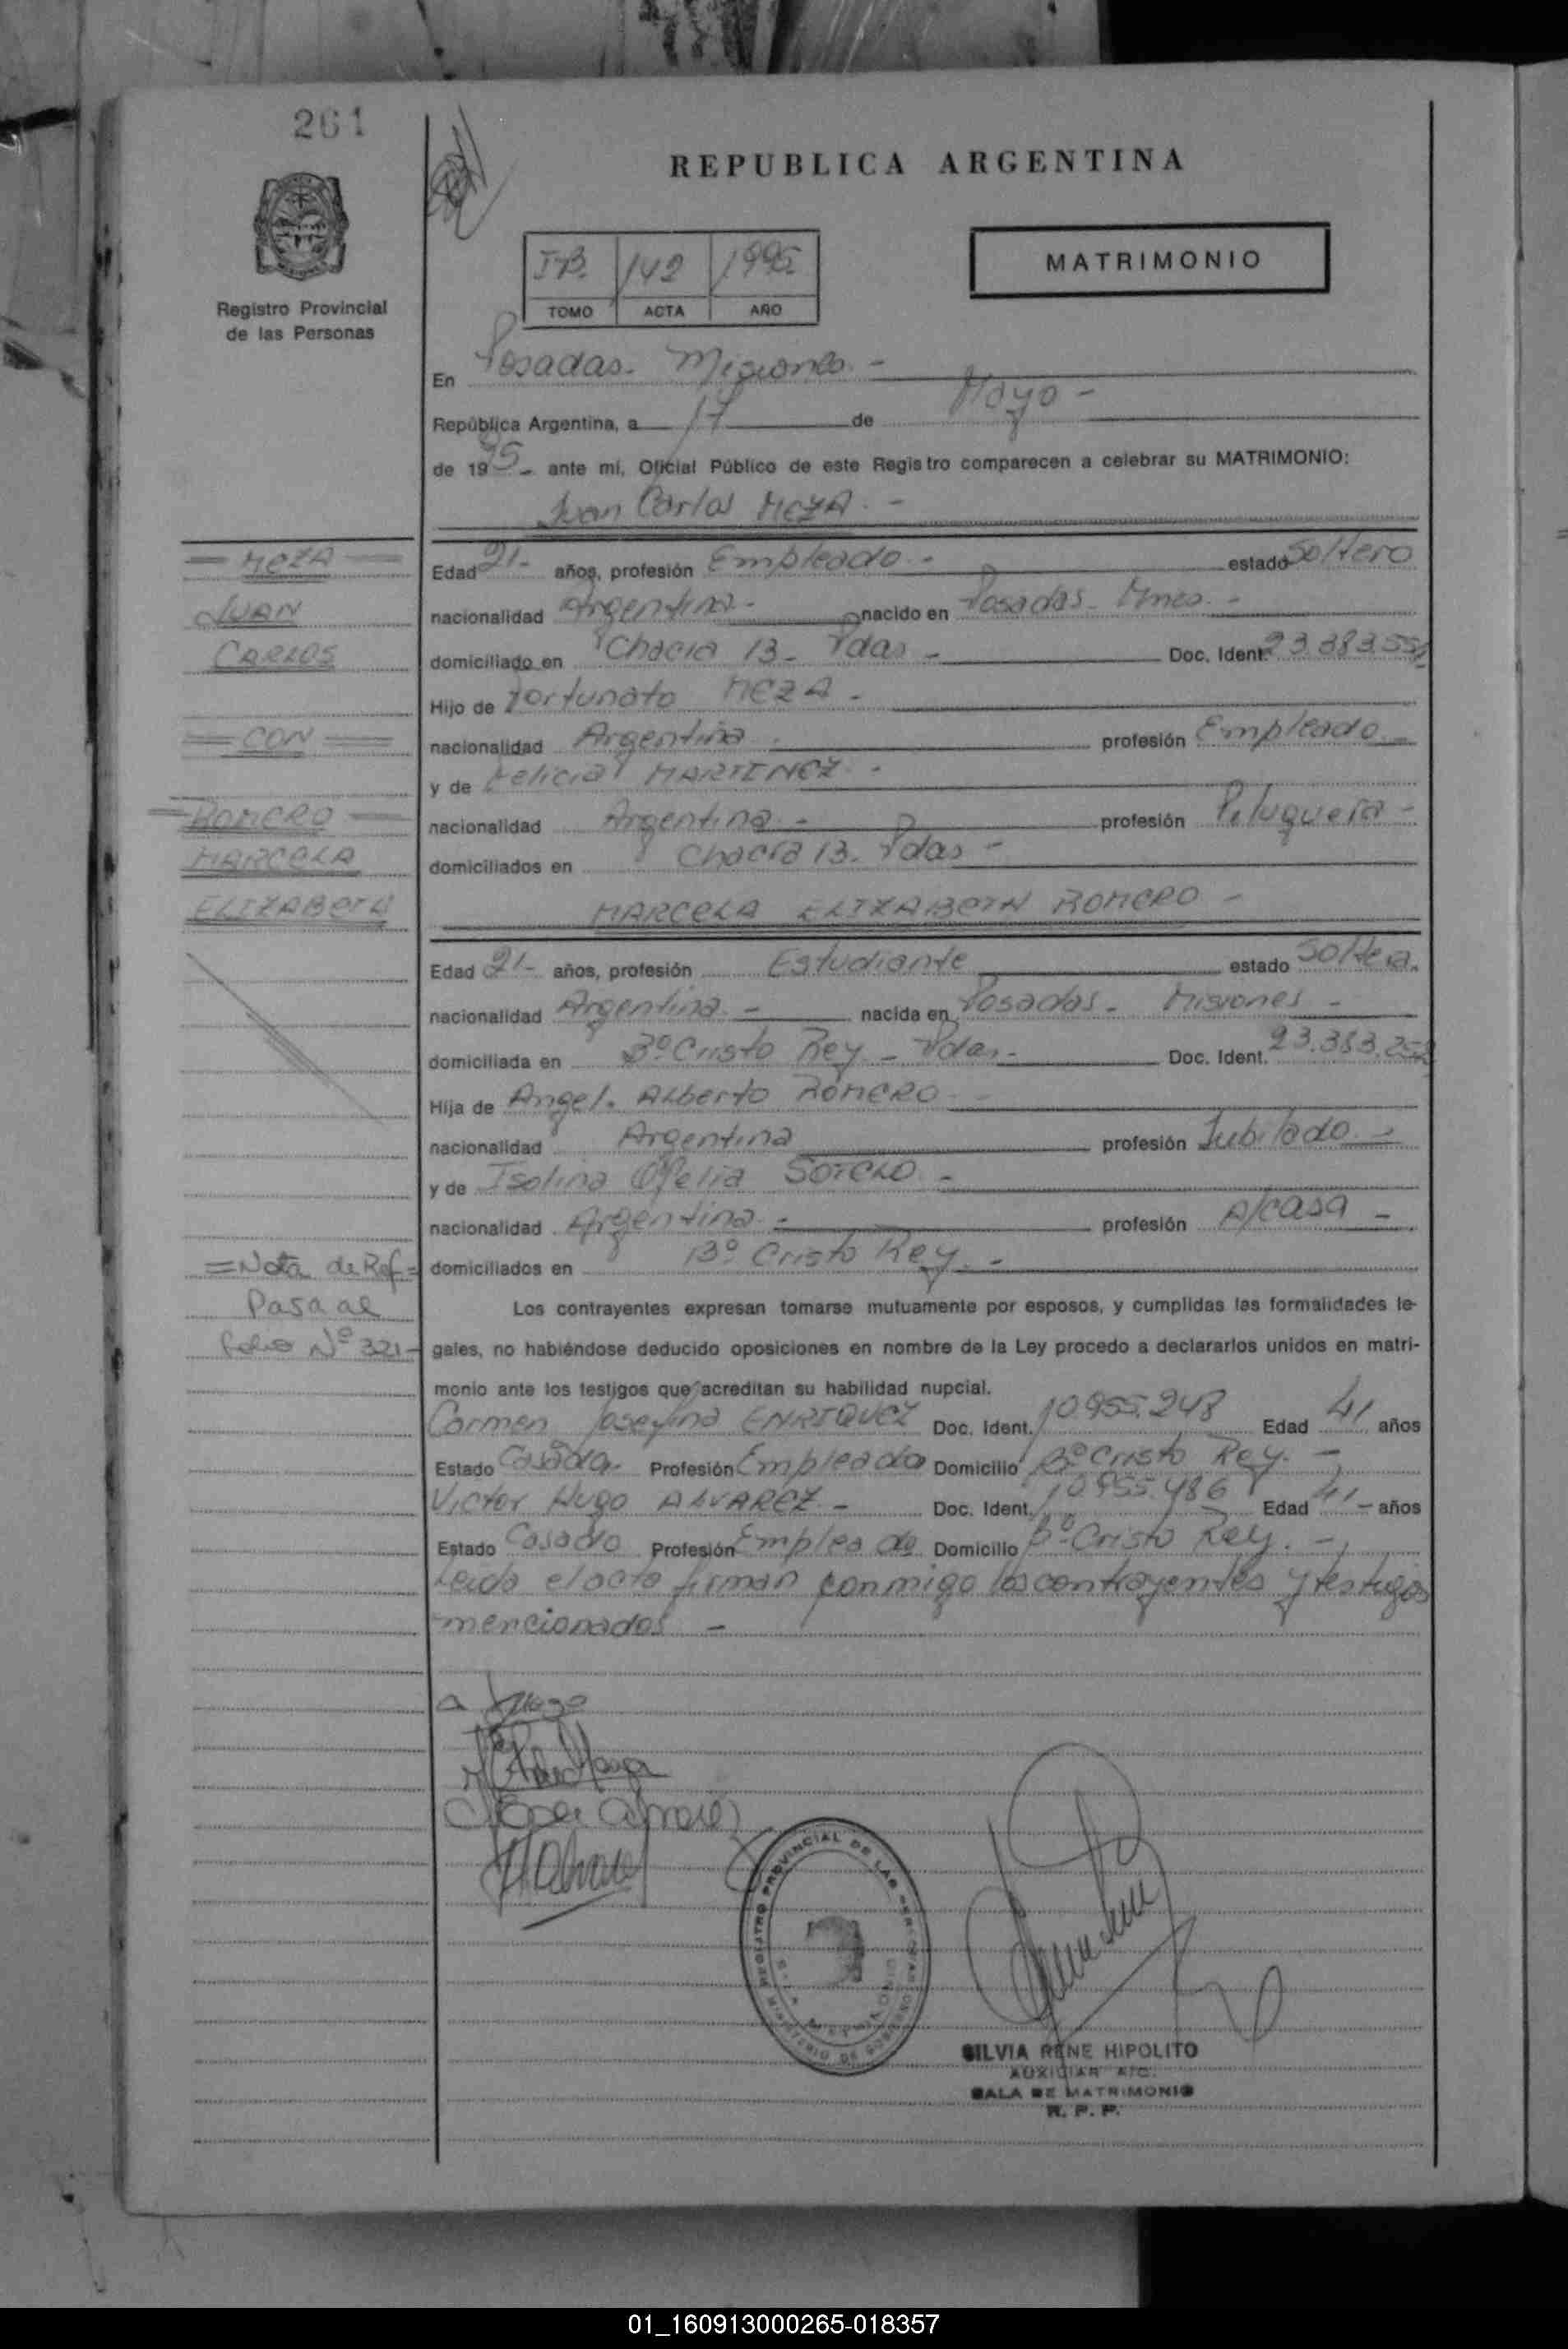 261
REPUBLICA ARGENTINA
MATRIMONIO
142 1995
TOMO ACTA AÑO
Registro Provincial
de las Personas
En Posadas - Misiones -
República Argentina, a 17 de Mayo -
de 1995 - ante mí, Oficial Público de este Registro comparecen a celebrar su MATRIMONIO:
Juan Carlos MEZA -
= MEZA =
JUAN
CARLOS
= CON =
= ROMERO =
MARCELA
ELIZABETH
Edad 21- años, profesión Empleado - estado Soltero
nacionalidad Argentina - nacido en Posadas - Mnes -
domiciliado en Chacra 13 - Pdas - Doc. Ident.
Hijo de Fortunato MEZA -
nacionalidad Argentina profesión Empleado -
y de Felicia MARTINEZ -
nacionalidad Argentina - profesión Peluquera -
domiciliados en Chacra 13. Pdas -
MARCELA ELIZABETH ROMERO -
Edad 21- años, profesión Estudiante estado Soltera.
nacionalidad Argentina - nacida en Posadas - Misiones -
domiciliada en Bº Cristo Rey - Pdas - Doc. Ident.
Hija de Angel. Alberto ROMERO -
nacionalidad Argentina profesión Jubilado -
y de Isolina Ofelia SOTELO -
nacionalidad Argentina - profesión A/casa -
domiciliados en Bº Cristo Rey. -
= Nota de Ref =
Pasa al
folio Nº 321-
Los contrayentes expresan tomarse mutuamente por esposos, y cumplidas las formalidades le-
gales, no habiéndose deducido oposiciones en nombre de la Ley procedo a declararlos unidos en matri-
monio ante los testigos que acreditan su habilidad nupcial.
Carmen Josefina ENRIQUEZ Doc. Ident. 10.955.248 Edad 41 años
Estado Casada - Profesión Empleada Domicilio Bº Cristo Rey. -
Victor Hugo ALVAREZ - Doc. Ident. 10.955.486 Edad 41 - años
Estado Casado Profesión Empleado Domicilio Bº Cristo Rey. -
Leida el acta firman conmigo los contrayentes y testigos
mencionados -
REGISTRO PROVINCIAL DE LAS PERSONAS
MINISTERIO DE GOBIERNO
SILVIA RENE HIPOLITO
AUXILIAR A/C.
SALA DE MATRIMONIO
R. P. P.
01_160913000265-018357